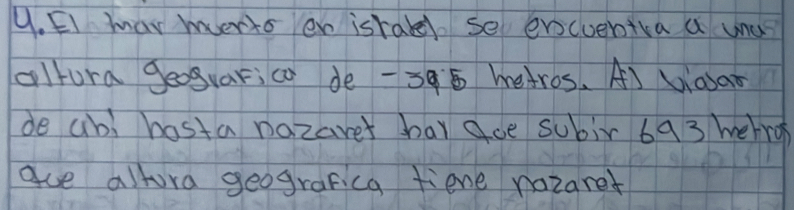 4. El mar muerto en israel se encuentra a una
altura geografica de -395 metros. Al viajar
de ahi hasta nazaret hay que subir 693 metros
que altura geografica tiene nazaret